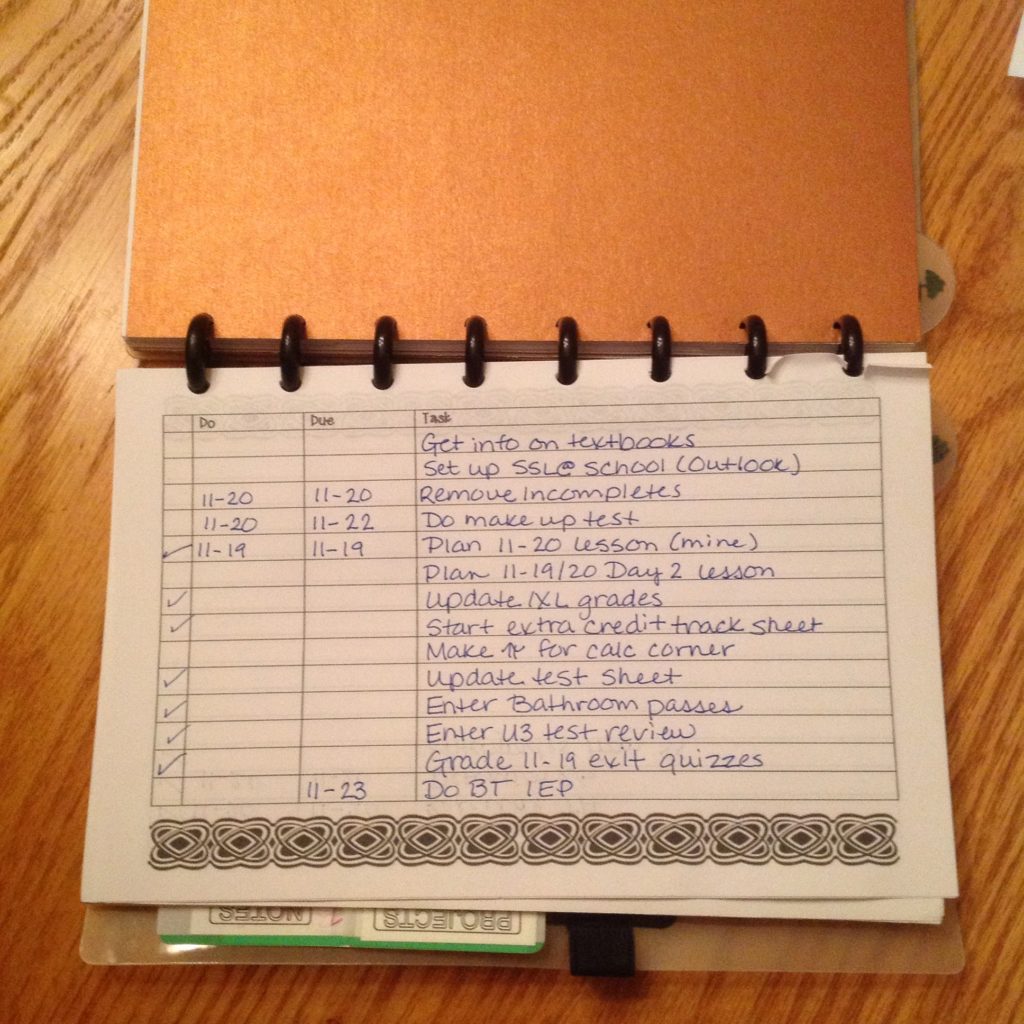 Do Due Task
Get info on textbooks
Set up SSL@ school (Outlook)
11-20 11-20 Remove Incompletes
11-20 11-22 Do make up test
✓ 11-19 11-19 Plan 11-20 lesson (mine)
Plan 11-19/20 Day 2 lesson
✓ Update IXL grades
✓ Start extra credit track sheet
Make ↑ for calc corner
✓ Update test sheet
✓ Enter Bathroom passes
✓ Enter U3 test review
✓ Grade 11-19 exit quizzes
11-23 Do BT IEP
NOTES PROJECTS